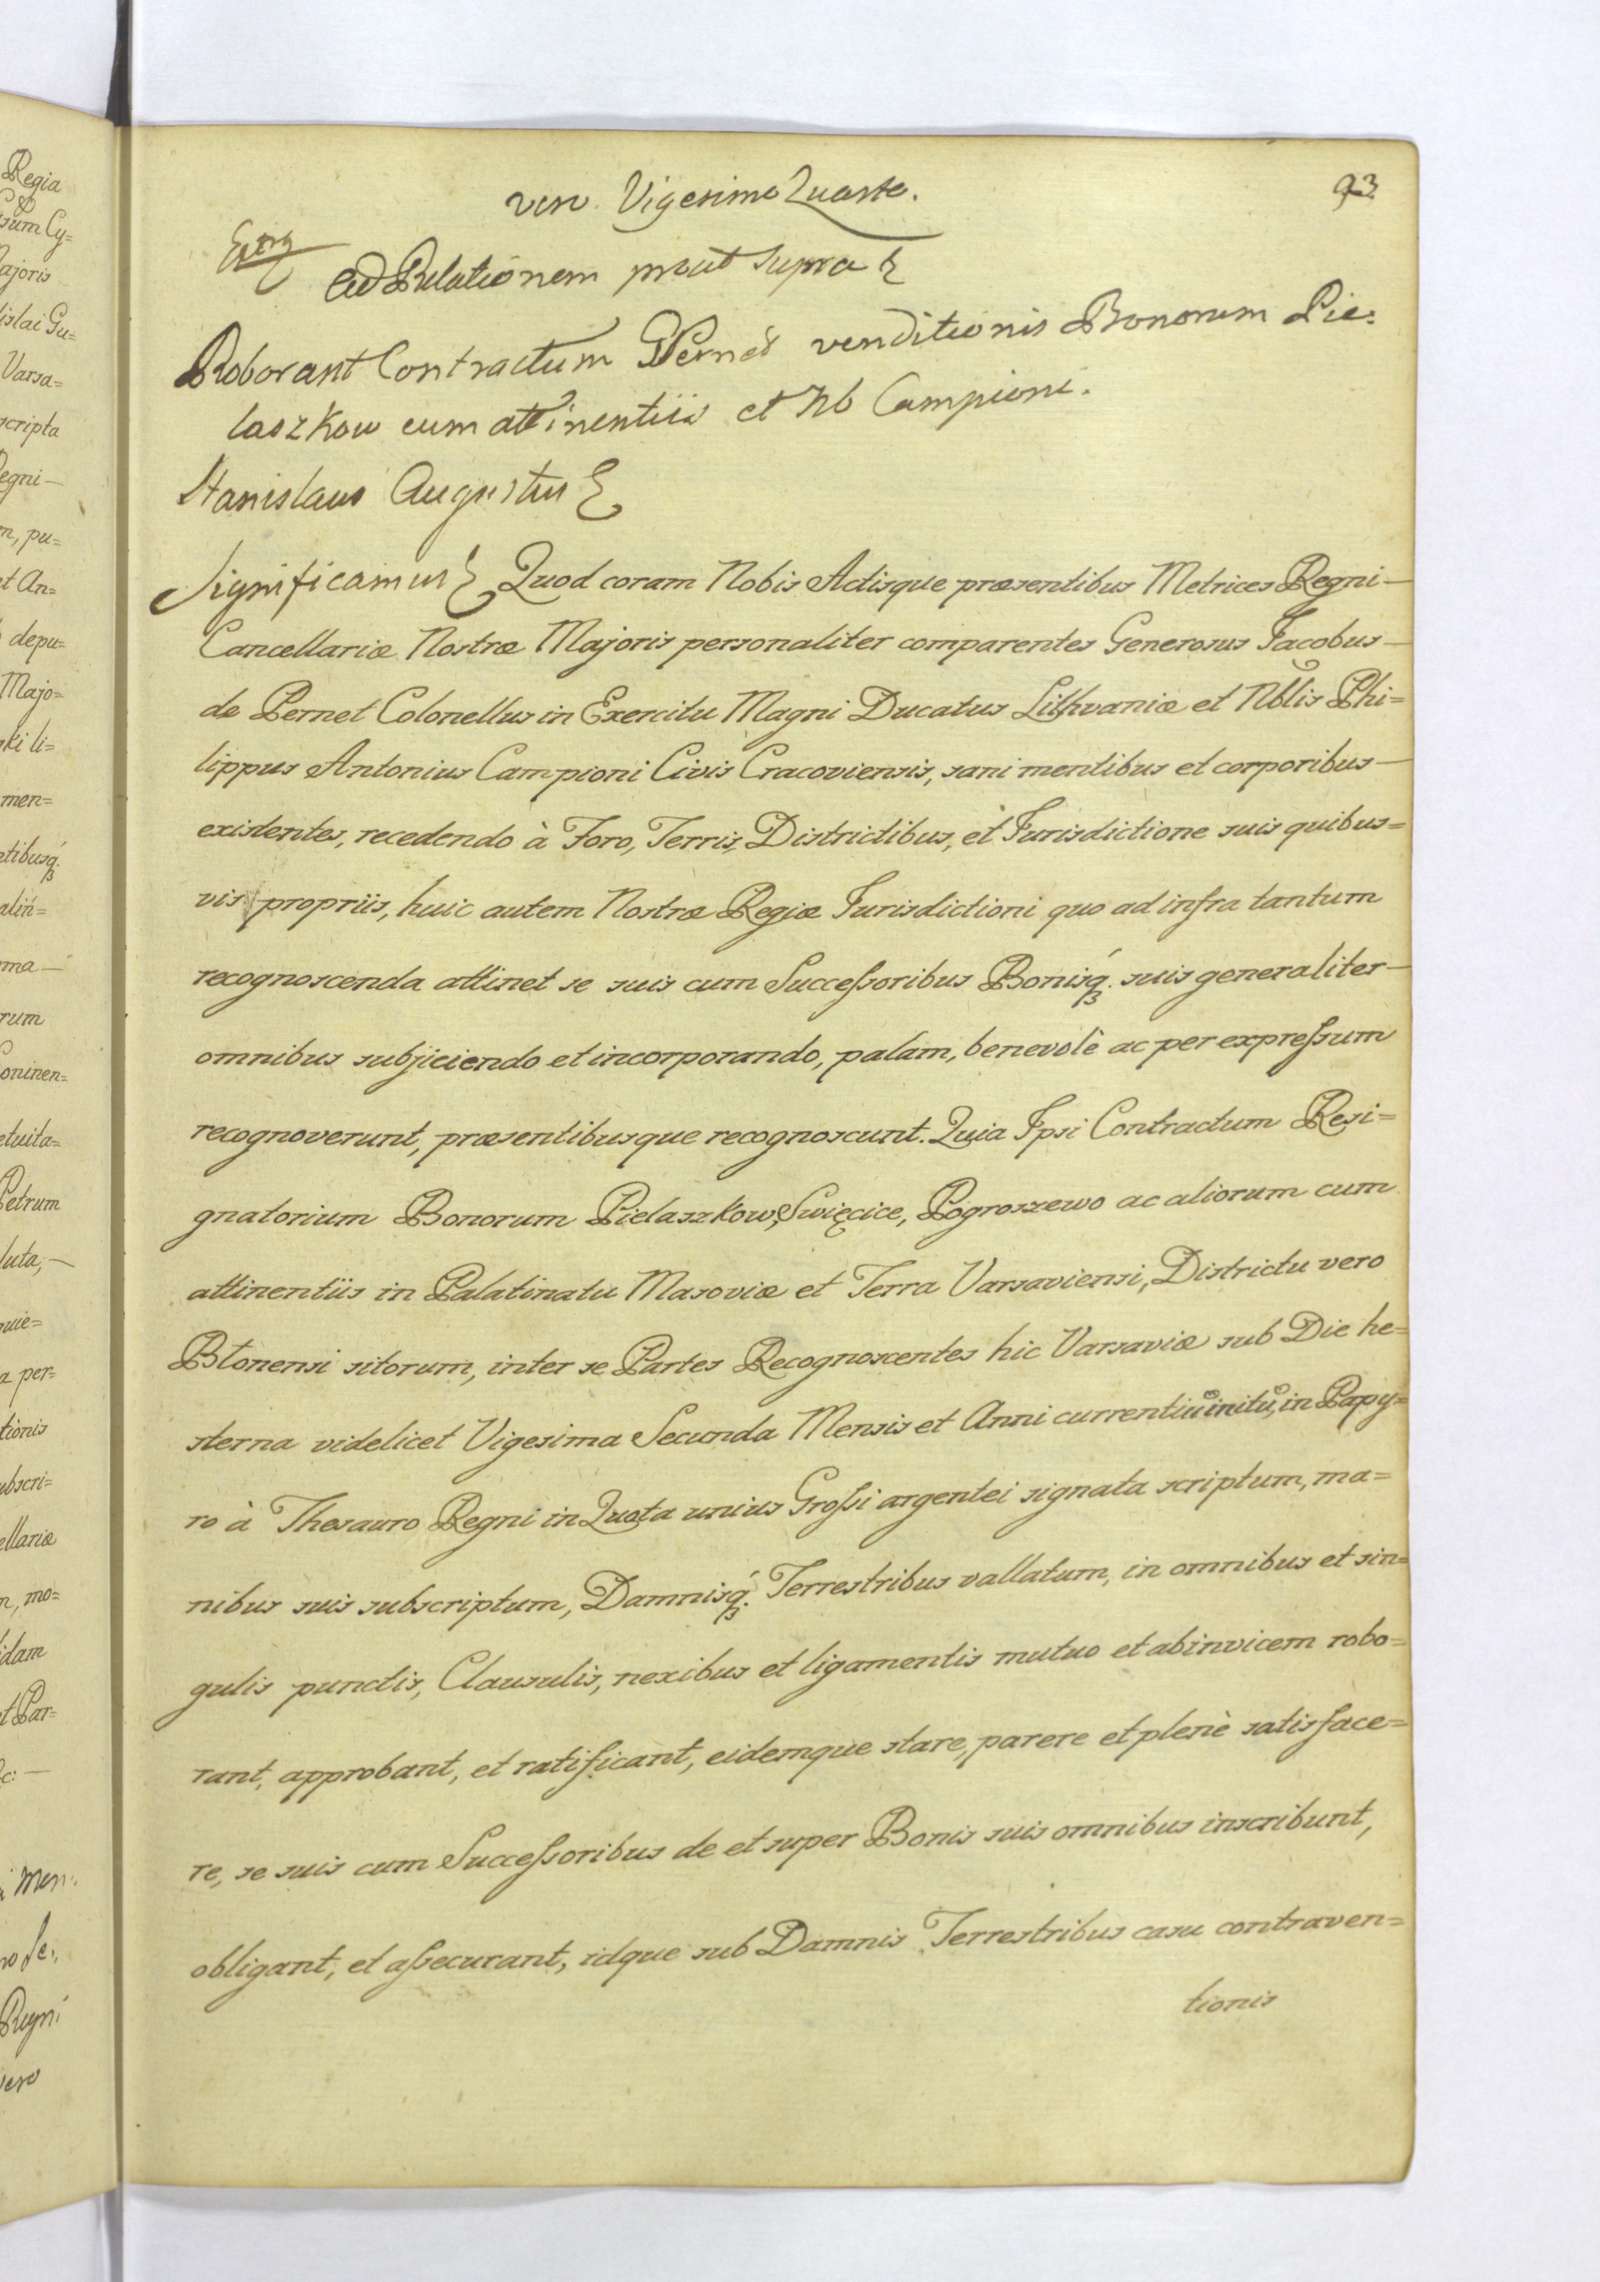 93
vero Vigesima Quarta.
Extra
Ad Relationem prout supra
Roborant Contractum G Pernet venditionis Bonorum Pie:
laszkow cum attinentiis et Nb Campioni.
Stanislaus Augustus
Significamus Quod coram Nobis Actisque præsentibus Metrices Regni —
Cancellariæ Nostræ Majoris personaliter comparentes Generosus Jacobus —
de Pernet Colonellus in Exercitu Magni Ducatus Lithvaniæ et Nblis Phi=
lippus Antonius Campioni Civis Cracoviensis, sani mentibus et corporibus —
existentes, recedendo à Foro, Terris, Districtibus, et Jurisdictione suis quibus=
vis propriis, huic autem Nostræ Regiæ Jurisdictioni quo ad infra tantum
recognoscenda attinet se suis cum Successoribus Bonisq. suis generaliter —
omnibus subjiciendo et incorporando, palam, benevolè ac per expressum
recognoverunt, præsentibusque recognoscunt. Quia Ipsi Contractum Resi=
gnatorium Bonorum Pielaszkow, Swięcice, Pogroszewo ac aliorum cum
attinentiis in Palatinatu Masoviæ et Terra Varsaviensi, Districtu vero
Błonensi sitorum, inter se Partes Recognoscentes hic Varsaviæ sub Die he=
sterna videlicet Vigesima Secunda Mensis et Anni currentiu initu, in Papy=
ro à Thesauro Regni in Quota unius Grossi argentei signata scriptum, ma=
nibus suis subscriptum, Damnisq. Terrestribus vallatum, in omnibus et sin=
gulis punctis, Clausulis, nexibus et ligamentis mutuo et abinvicem robo=
rant, approbant, et ratificant, eidemque stare, parere et plenè satisface=
re, se suis cum Successoribus de et super Bonis suis omnibus inscribunt,
obligant, et assecurant, idque sub Damnis Terrestribus casu contraven=
tionis